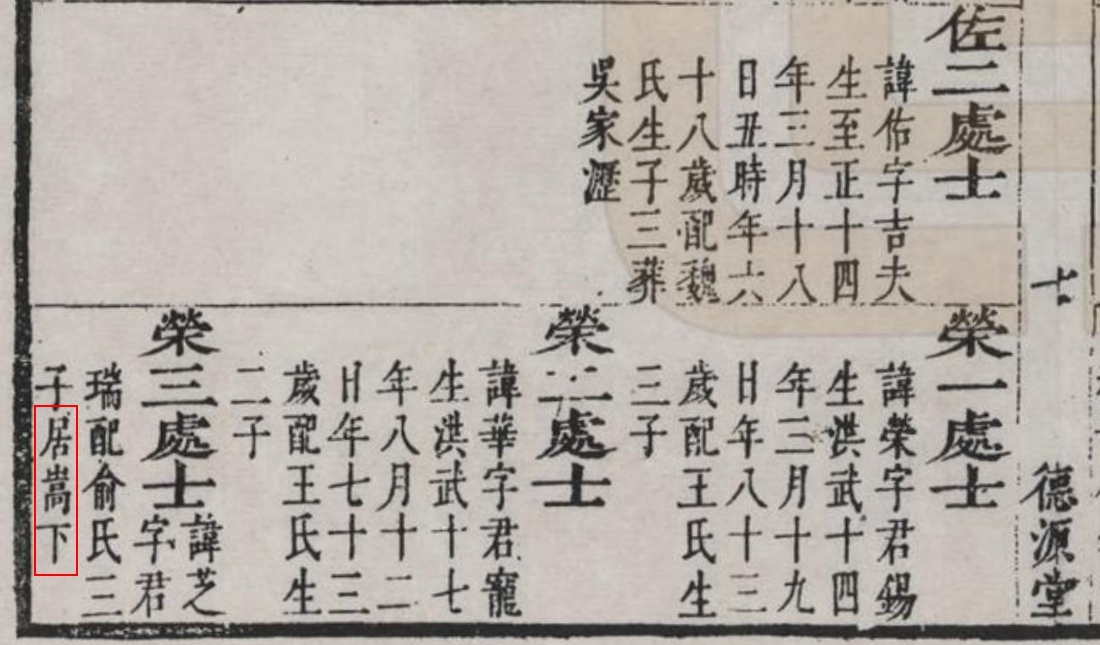 佐二處士
諱佑字吉夫
生至正十四
年三月十八
日丑時年六
十八歲配魏
氏生子三葬
吳家瀝
十
德源堂
榮一處士
諱榮字君錫
生洪武十四
年三月十九
日年八十三
歲配王氏生
三子
榮二處士
諱華字君寵
生洪武十七
年八月十二
日年七十三
歲配王氏生
二子
榮三處士
諱芝
字君
瑞配俞氏三
子居嵩下